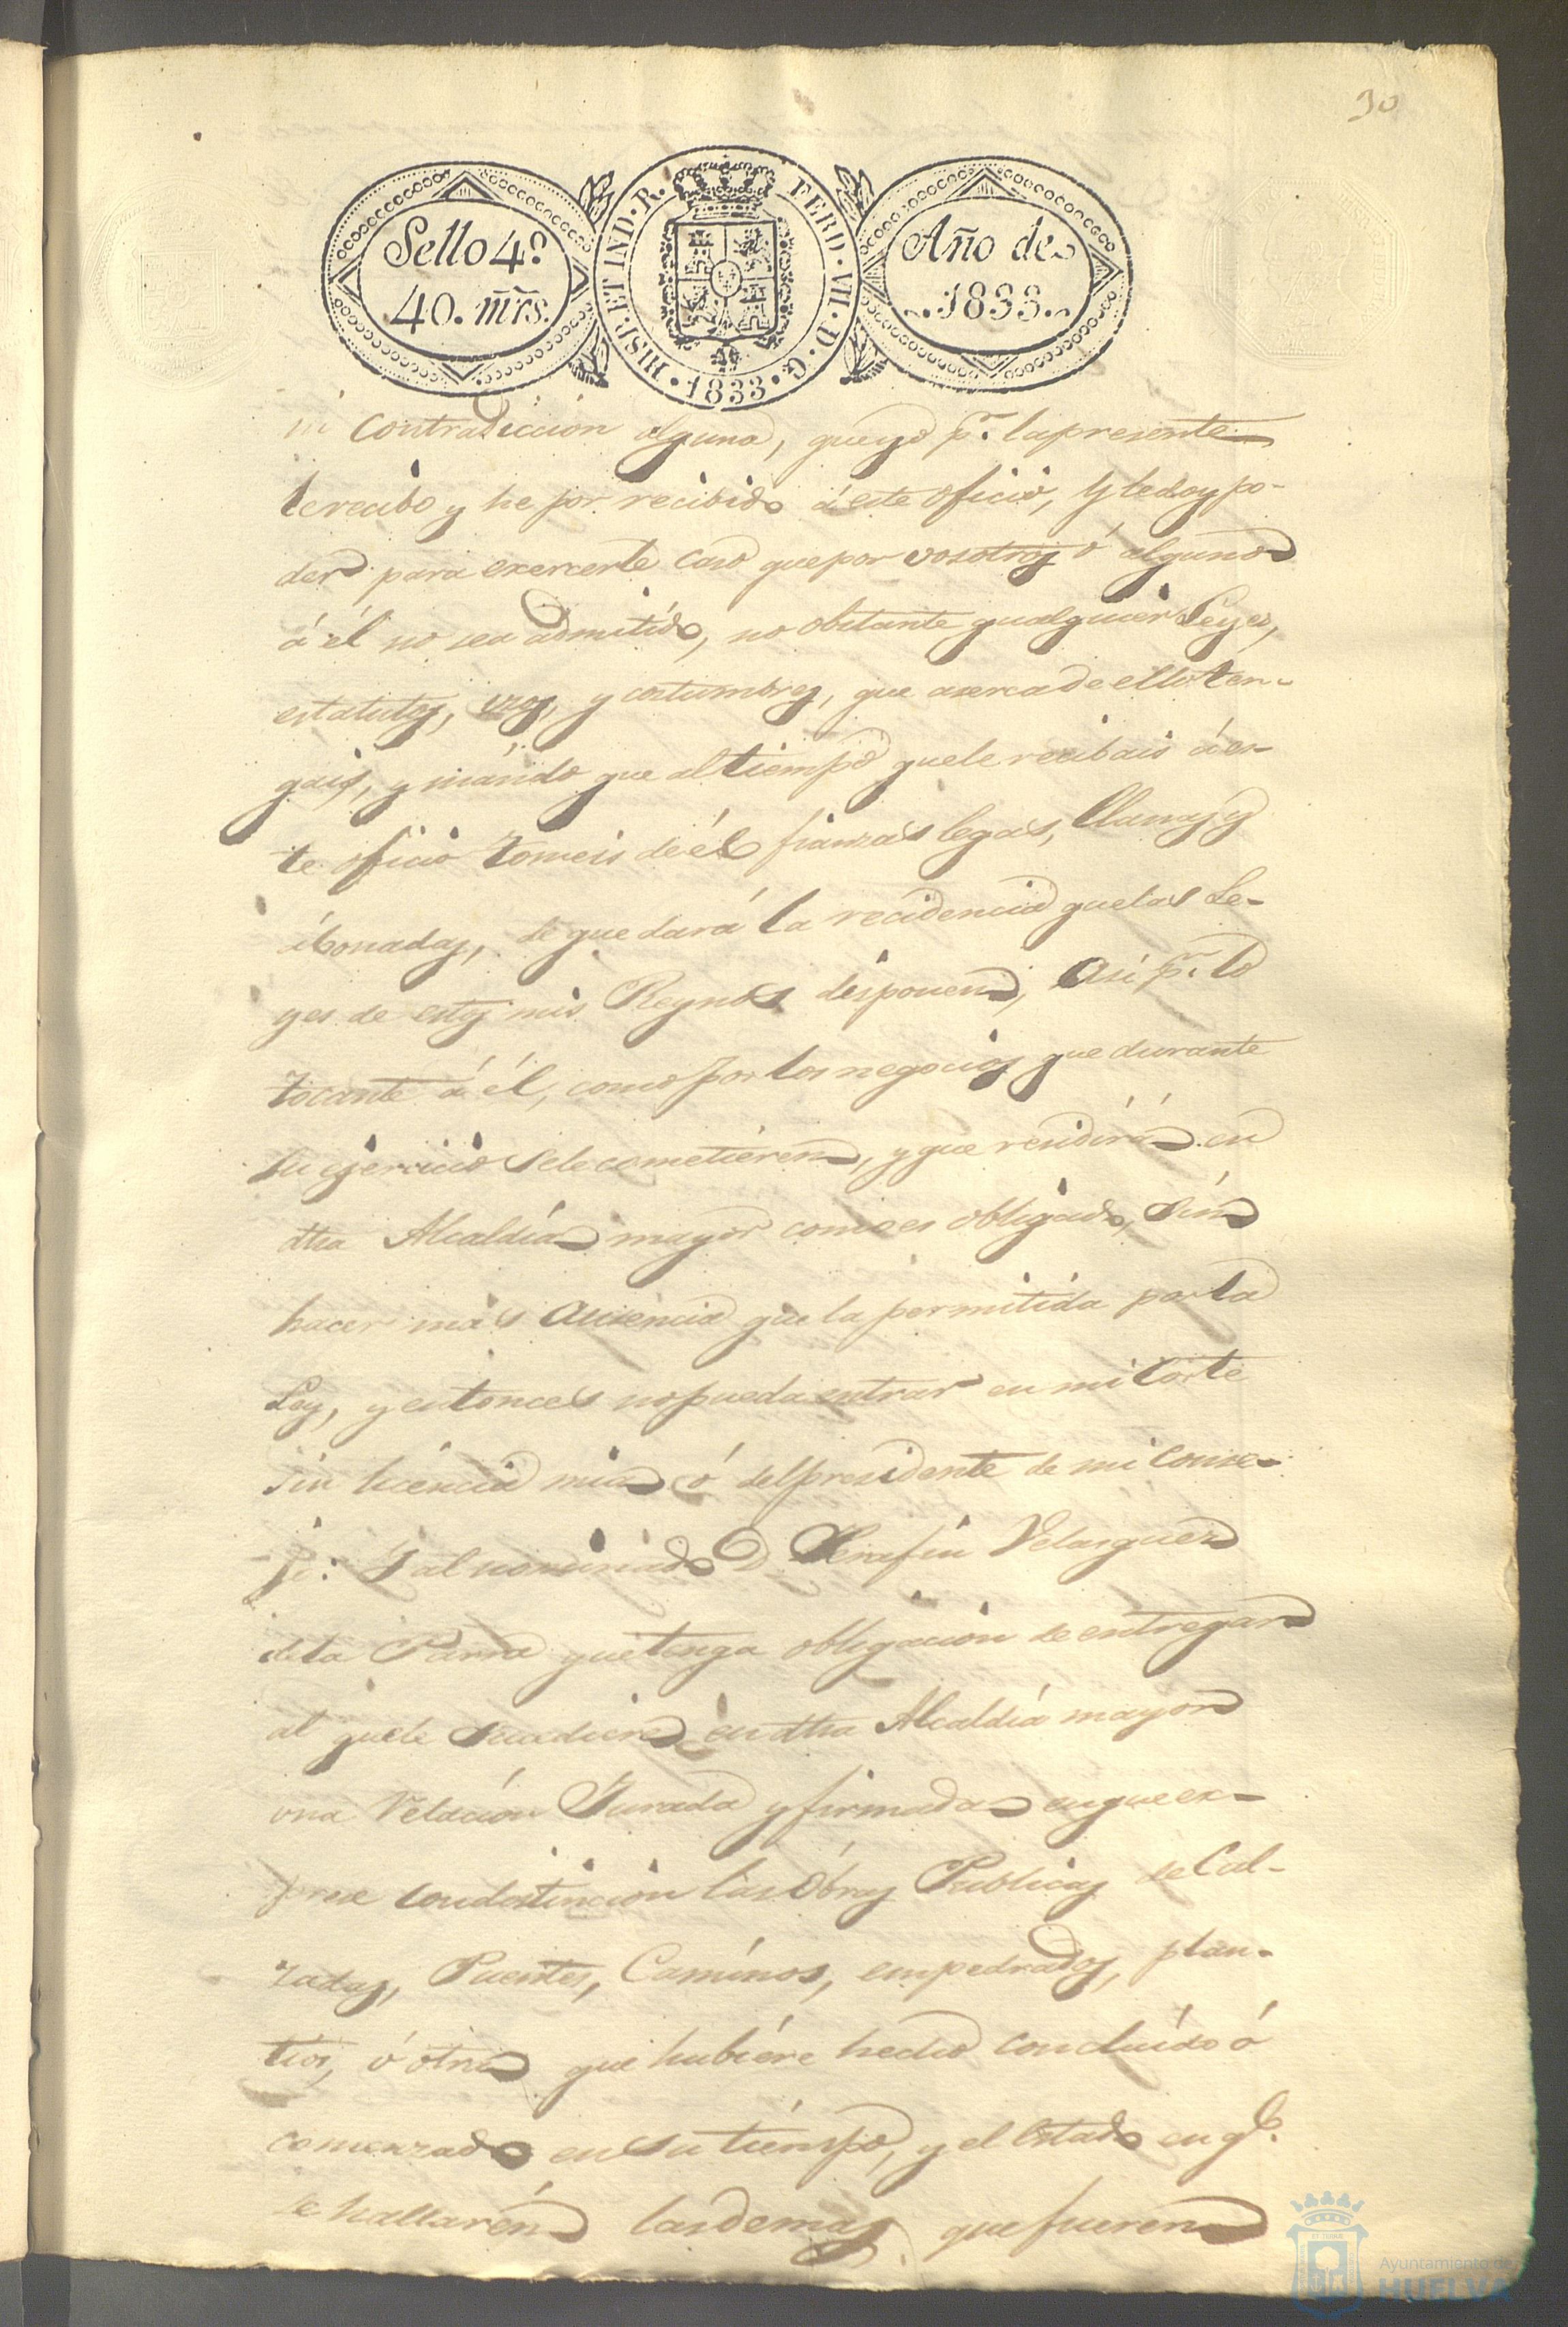 30
Sello 4º
40. mrs.
HISP. ET IND. R. FERD. VII. D. G. 1833.
Año de
1833
ni contradiccion alguna, que yo pr. la presente
le recibo y he por recibido á este oficio, y le doy po-
der para exercerle caso que por vosotros ó alguno
á él no sea admitido, no obstante qualquier Leyes,
estatutos, usos, y costumbres, que acerca de ello ten-
gais, y mando que al tiempo que le recibais á es-
te oficio tomeis de él fianzas legas, llanas y
abonadas, de que dará la recidencia que las Le-
yes de estos mis Reynos disponen, Asi pr. lo
tocante á él, como por los negocios que durante
su ejercicio se le cometieren, y que residirá en
dha Alcaldía mayor como es obligado, sin
hacer mas Ausencia que la permitida por la
Ley, y entonces no pueda entrar en mi Corte
sin licencia mia ó del presidente de mi Conse-
jo: Y al nominado D Serafin Velasquez
de la Parra que tenga obligacion de entregar
al que le sucediere en dha Alcaldía mayor
una Relacion Jurada y firmada en que ex-
prese con distincion las Obras Publicas de Cal-
zadas, Puentes, Caminos, empedrados, plan-
tios, ó otras que hubiére hecho concluido ó
comenzado en su tiempo, y el Estado en qe.
se hallaren las demas que fueren
Ayuntamiento de
HUELVA